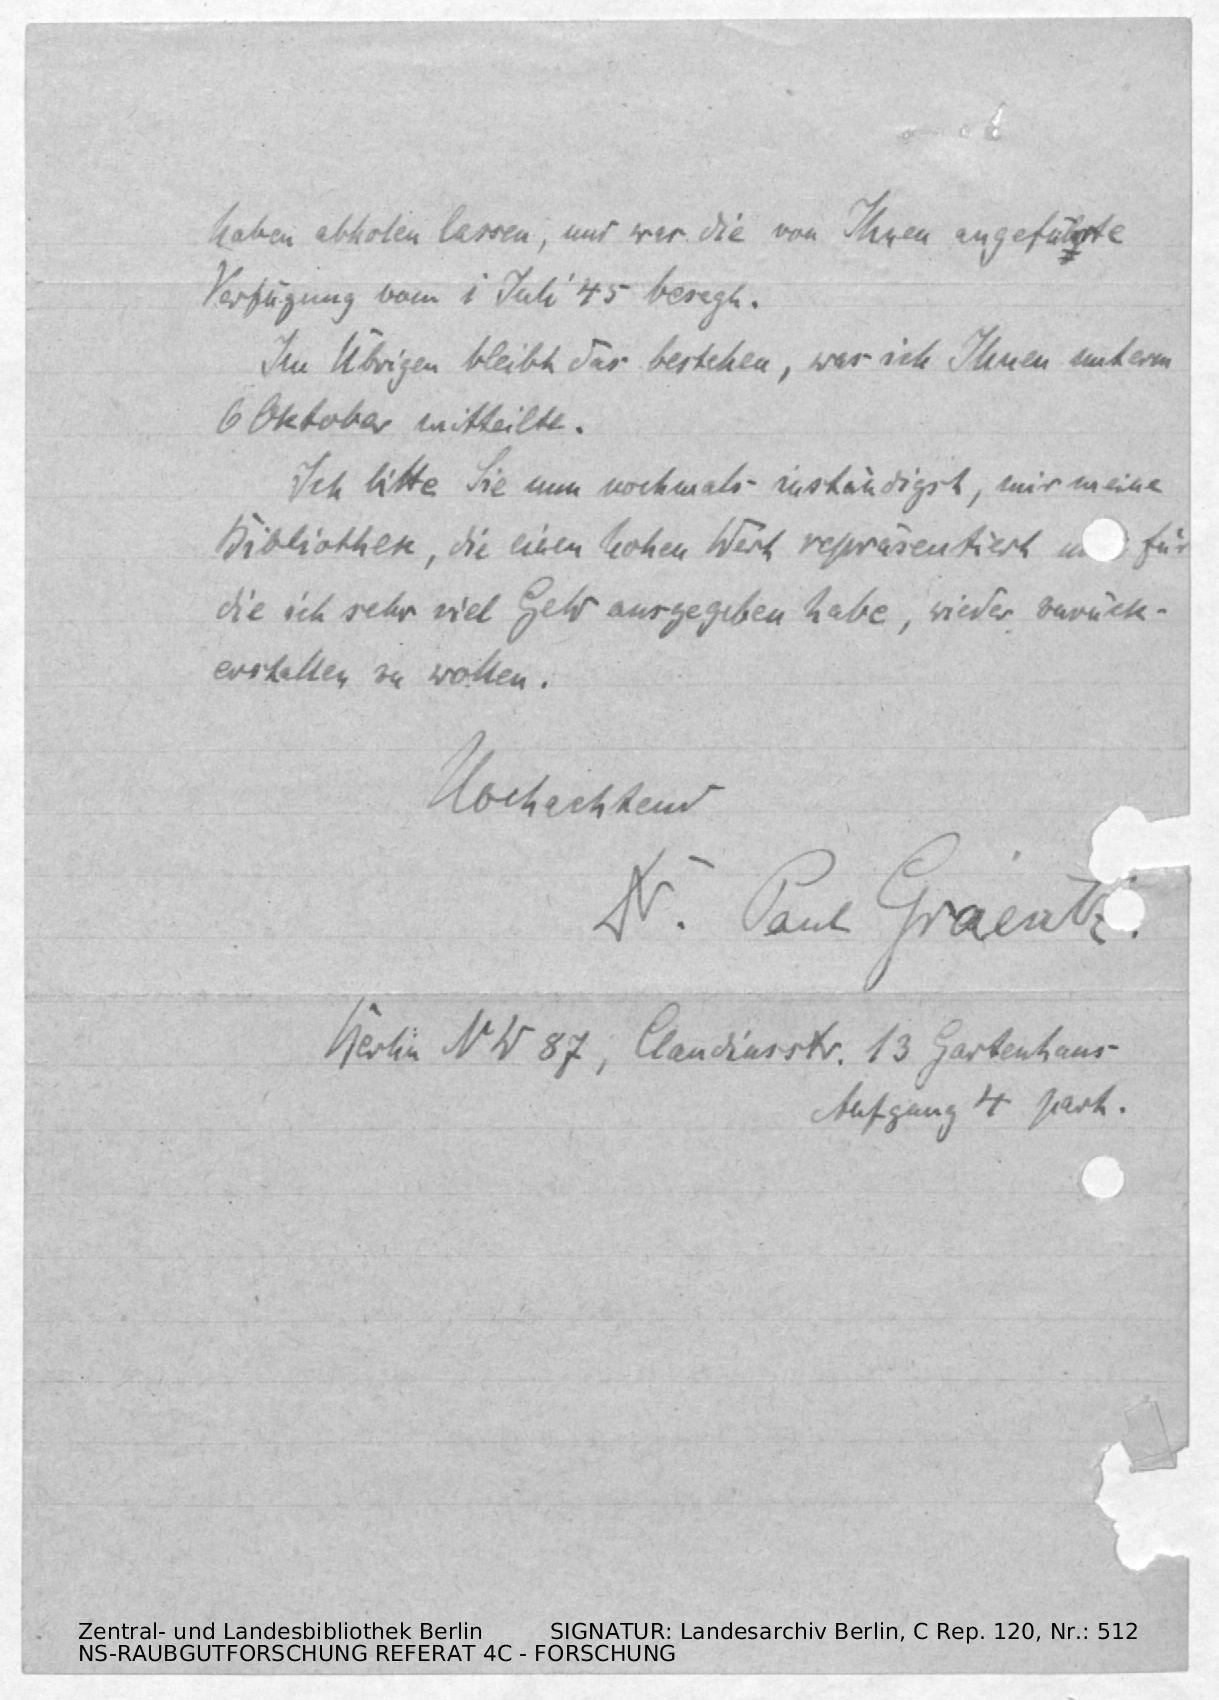 haben abholen lassen, und was die von Ihnen angeführte
Verfügung vom 1 Juli '45 besagt.
Im Übrigen bleibt das bestehen, was ich Ihnen unterm
6 Oktober mitteilte.
Ich bitte Sie nun nochmals inständigst, mir meine
Bibliothek, die einen hohen Wert repräsentiert für
die ich sehr viel Geld ausgegeben habe, wieder zurück-
erstatten zu wollen.
Hochachtend
Dr. Paul Graentz.
Berlin NW 87, Claudiusstr. 13 Gartenhaus
Aufgang 4 part.
Zentral- und Landesbibliothek Berlin SIGNATUR: Landesarchiv Berlin, C Rep. 120, Nr.: 512
NS-RAUBGUTFORSCHUNG REFERAT 4C - FORSCHUNG